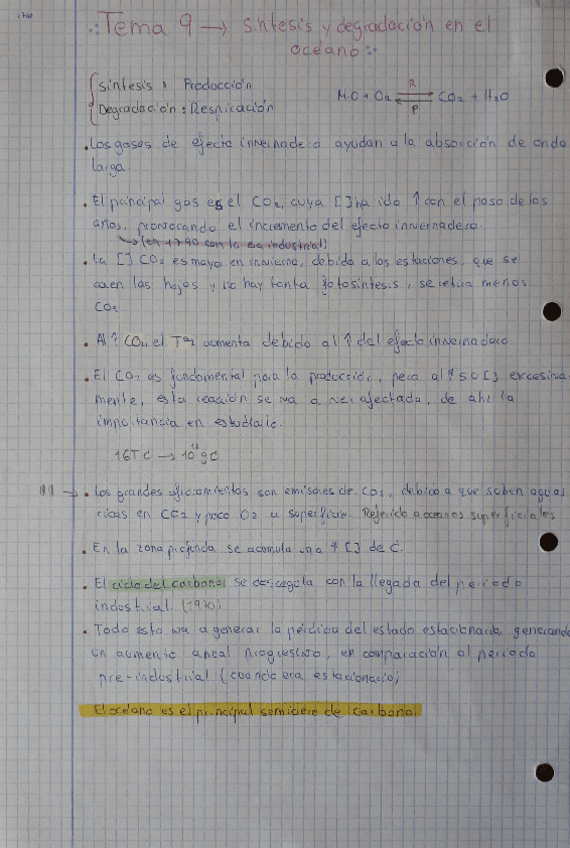 ∴ Tema 9 → síntesis y degradación en el
océano ∴
Síntesis : Producción
Degradación : Respiración
M.O + O₂ ⇌ CO₂ + H₂O
R
P
. Los gases de efecto invernadero ayudan a la absorción de onda
larga.
. El principal gas es el CO₂, cuya [] ha ido ↑ con el paso de los
años, provocando el incremento del efecto invernadero.
↳ (en 1790 con la era industrial)
. La [] CO₂ es mayor en invierno, debido a las estaciones, que se
caen las hojas y no hay tanta fotosíntesis, se retira menos
CO₂
. Al ↑ CO₂, el Tª aumenta debido al ↑ del efecto invernadero
. El CO₂ es fundamental para la producción, pero al ↑ su [] excesiva
mente, esta reacción se va a ver afectada, de ahí la
importancia en estudiarle.
1GTC → 10 gC
. Los grandes afloramientos son emisores de CO₂, debido a que suben aguas
ricas en CO₂ y poco O₂ a superficie. Referido a oceanos superficiales
. En la zona profunda se acomula una ↑ [] de C.
. El ciclo del carbono se descegula con la llegada del periodo
industrial. (1970)
. Todo esto va a generar la pérdida del estado estacionario, generando
un aumento anual progresivo, en comparación al periodo
pre-industrial (cuando era estacionario)
El océano es el principal sumidero de carbono.